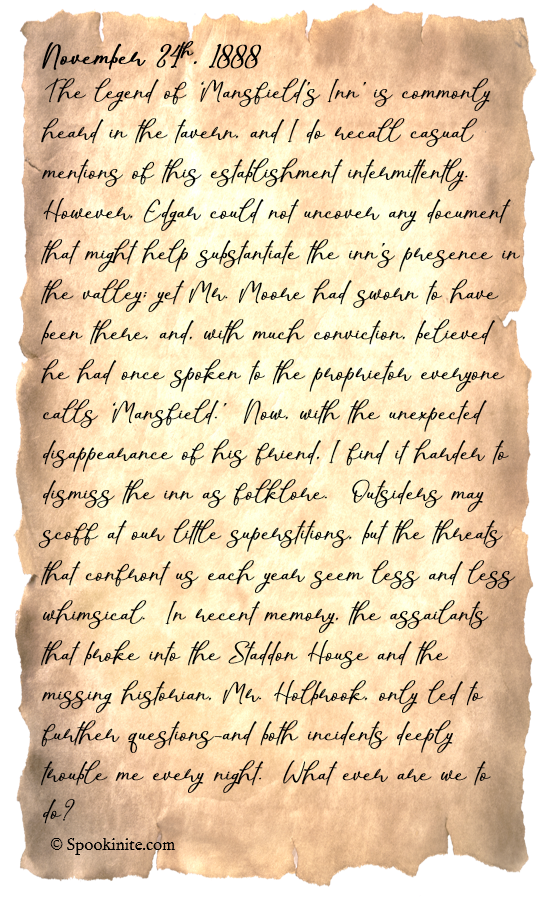 November 24th, 1888
The legend of 'Mansfield's Inn' is commonly
heard in the tavern, and I do recall casual
mentions of this establishment intermittently.
However, Edgar could not uncover any document
that might help substantiate the inn's presence in
the valley; yet Mr. Moore had sworn to have
been there, and, with much conviction, believed
he had once spoken to the proprietor everyone
calls 'Mansfield.' Now, with the unexpected
disappearance of his friend, I find it harder to
dismiss the inn as folklore. Outsiders may
scoff at our little superstitions, but the threats
that confront us each year seem less and less
whimsical. In recent memory, the assailants
that broke into the Staddon House and the
missing historian, Mr. Holbrook, only led to
further questions-and both incidents deeply
trouble me every night. What ever are we to
do?
© Spookinite.com